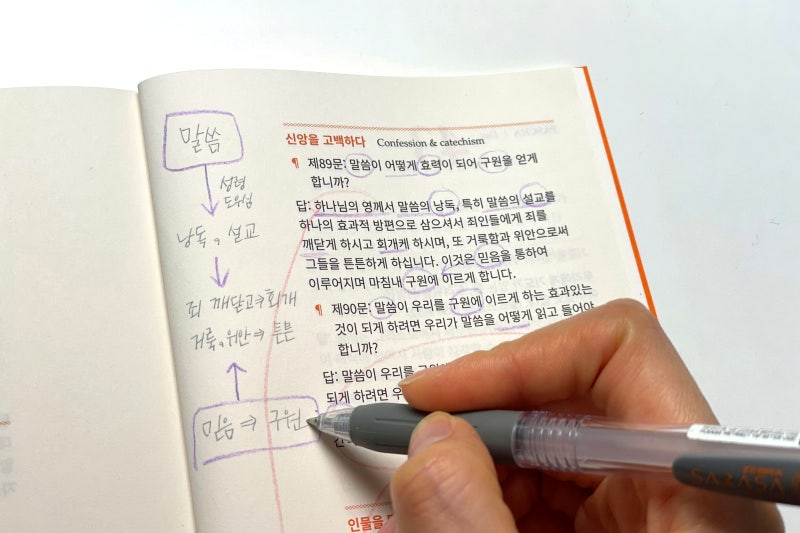 말씀
성령
도우심
낭독, 설교
죄 깨닫고⇒회개
거룩, 위안⇒튼튼
믿음⇒구원
신앙을 고백하다 Confession & catechism
¶ 제89문: 말씀이 어떻게 효력이 되어 구원을 얻게
합니까?
답: 하나님의 영께서 말씀의 낭독, 특히 말씀의 설교를
하나의 효과적 방편으로 삼으셔서 죄인들에게 죄를
깨닫게 하시고 회개케 하시며, 또 거룩함과 위안으로써
그들을 튼튼하게 하십니다. 이것은 믿음을 통하여
이루어지며 마침내 구원에 이르게 합니다.
¶ 제90문: 말씀이 우리를 구원에 이르게 하는 효과있는
것이 되게 하려면 우리가 말씀을 어떻게 읽고 들어야
합니까?
답: 말씀이 우리를
되게 하려면
인물을
ZEBRA
SARASA